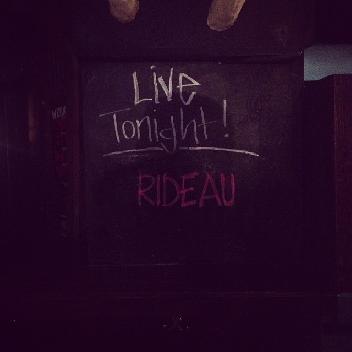 Live
Tonight!
RIDEAU